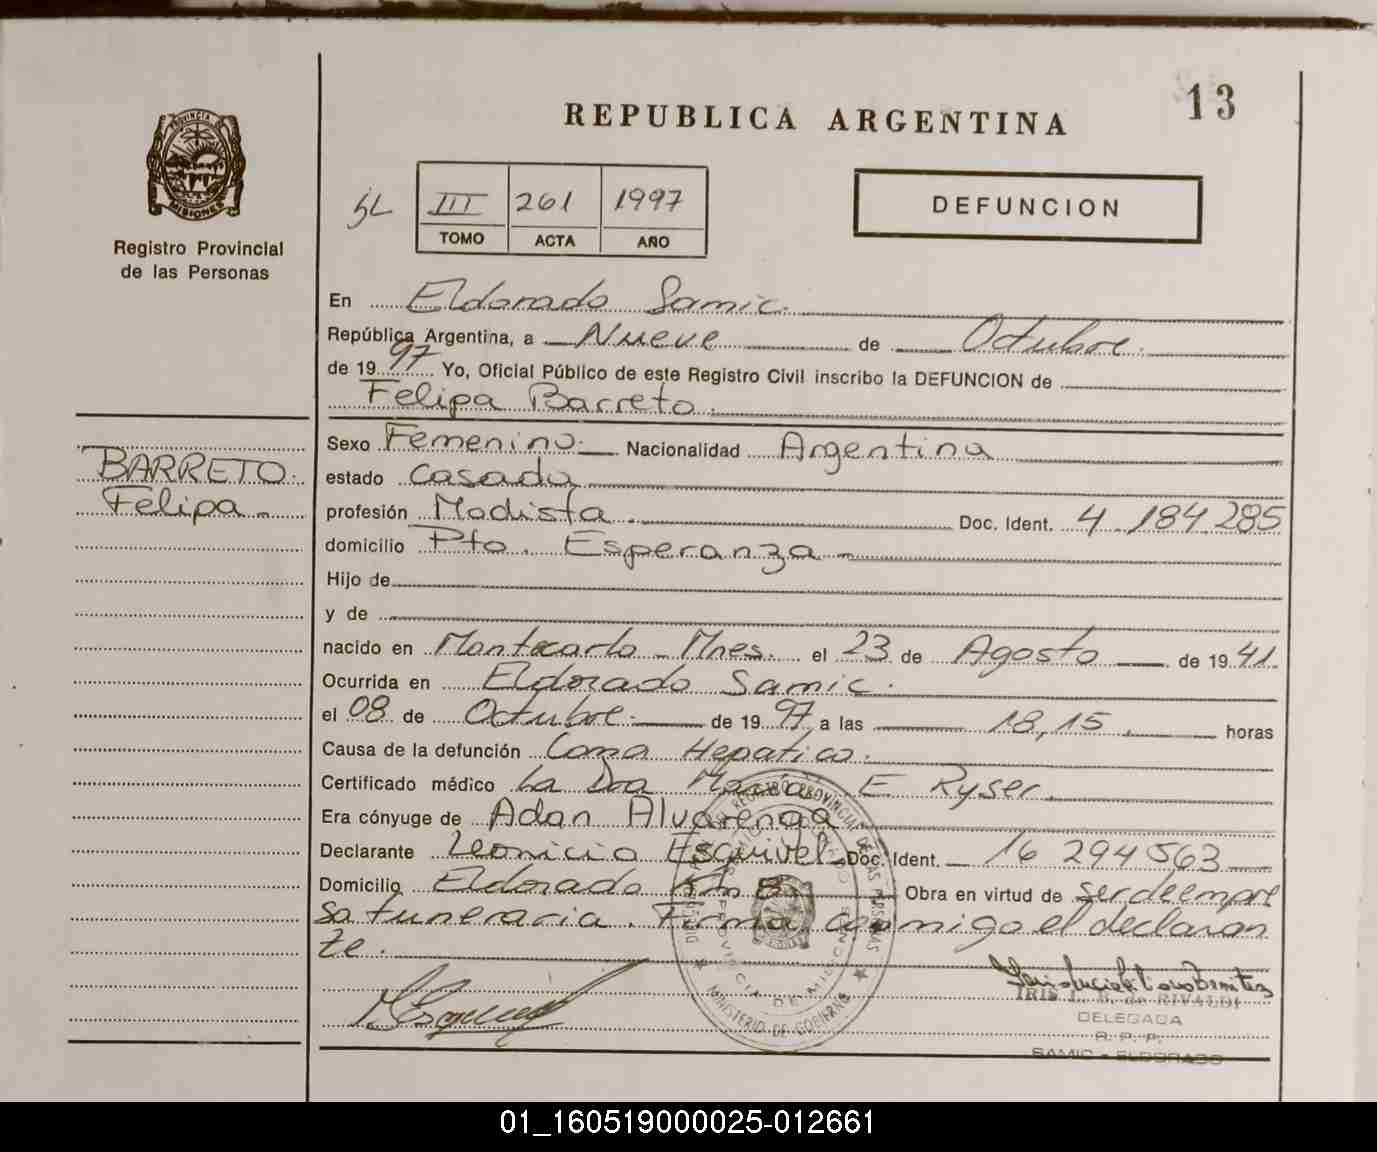 13
REPUBLICA ARGENTINA
PROVINCIA DE
MISIONES
Registro Provincial
de las Personas
III 261 1997
TOMO ACTA AÑO
DEFUNCION
En Eldorado Samic.
República Argentina, a Nueve de Octubre.
de 1997 Yo, Oficial Público de este Registro Civil inscribo la DEFUNCION de
Felipa Barreto.
BARRETO.
Felipa.
Sexo Femenino. Nacionalidad Argentina
estado casada
profesión Modista. Doc. Ident. 4.184.285
domicilio Pto. Esperanza
Hijo de
y de
nacido en Montecarlo - Mnes. el 23 de Agosto de 1941.
Ocurrida en Eldorado Samic.
el 08 de Octubre. de 1997 a las 18,15 horas
Causa de la defunción Coma Hepatico.
Certificado médico La Dra Maria E Ryser.
Era cónyuge de Adan Alvarenga
Declarante Leonicio Esquivel Doc. Ident. 16 294 563
Domicilio Eldorado Km 8 Obra en virtud de ser de empre
sa funeraria. Firma conmigo el declaran
te.
IRIS L. B. de RIVALDI
DELEGADA
R. P. P.
SAMIC - ELDORADO
REGISTRO PROVINCIAL DE LAS PERSONAS
PROVINCIA DE MISIONES
MINISTERIO DE GOBIERNO
01_160519000025-012661